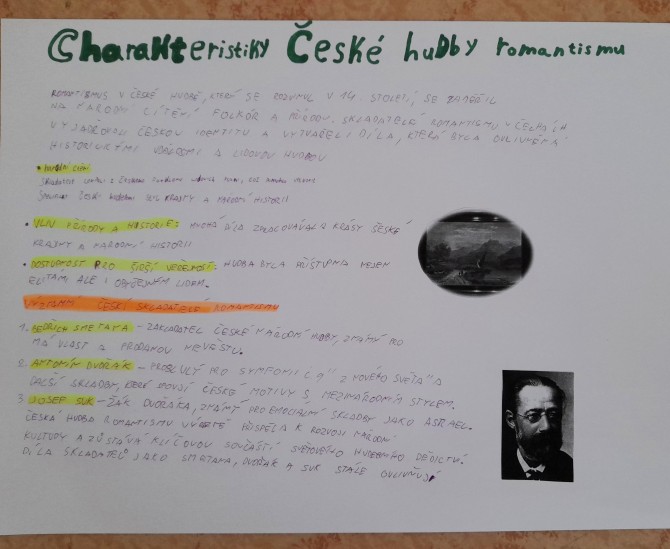 Charakteristiky České huDby romantismu
ROMANTISMUS V ČESKÉ HUDBĚ, KTERÝ SE ROZVINUL V 19. STOLETÍ, SE ZAMĚŘIL
NA NÁRODNÍ CÍTĚNÍ FOLKLÓR A PŘÍRODU. SKLADATELÉ ROMANTISMU V ČECHÁCH
VYJADŘOVALI ČESKOU IDENTITU A VYTVÁŘELI DÍLA, KTERÁ BYLA OVLIVNĚNA
HISTORICKÝMI UDÁLOSTMI A LIDOVOU HUDBOU
• NÁRODNÍ
KRAJINY A NÁRODNÍ HISTORII
• VLIV PŘÍRODY A HISTORIE: MNOHÁ DÍLA ZPRACOVÁVALA KRÁSY ČESKÉ
KRAJINY A NÁRODNÍ HISTORII
• DOSTUPNOST PRO ŠIRŠÍ VEŘEJNOST: HUDBA BYLA PŘÍSTUPNÁ NEJEN
ELITÁM ALE I OBYČEJNÝM LIDEM.
ČESKÉ SKLADATELÉ ROMANTISMU
1. BEDŘICH SMETANA - ZAKLADATEL ČESKÉ NÁRODNÍ HUDBY, ZNÁMÝ PRO
MÁ VLAST A PRODANOU NEVĚSTU.
2. ANTONÍN DVOŘÁK - PROSLULÝ PRO SYMFONII Č. 9 "Z NOVÉHO SVĚTA" A
DALŠÍ SKLADBY, KTERÉ SPOJUJÍ ČESKÉ MOTIVY S MEZINÁRODNÍM STYLEM.
3. JOSEF SUK - ŽÁK DVOŘÁKA, ZNÁMÝ PRO EMOCIONÁLNÍ SKLADBY JAKO ASRAEL.
ČESKÁ HUDBA ROMANTISMU PŘISPĚLA K ROZVOJI NÁRODNÍ
KULTURY A ZŮSTÁVÁ KLÍČOVOU SOUČÁSTÍ SVĚTOVÉHO HUDEBNÍHO DĚDICTVÍ.
DÍLA SKLADATELŮ JAKO SMETANA, DVOŘÁK A SUK STÁLE OVLIVŇUJÍ